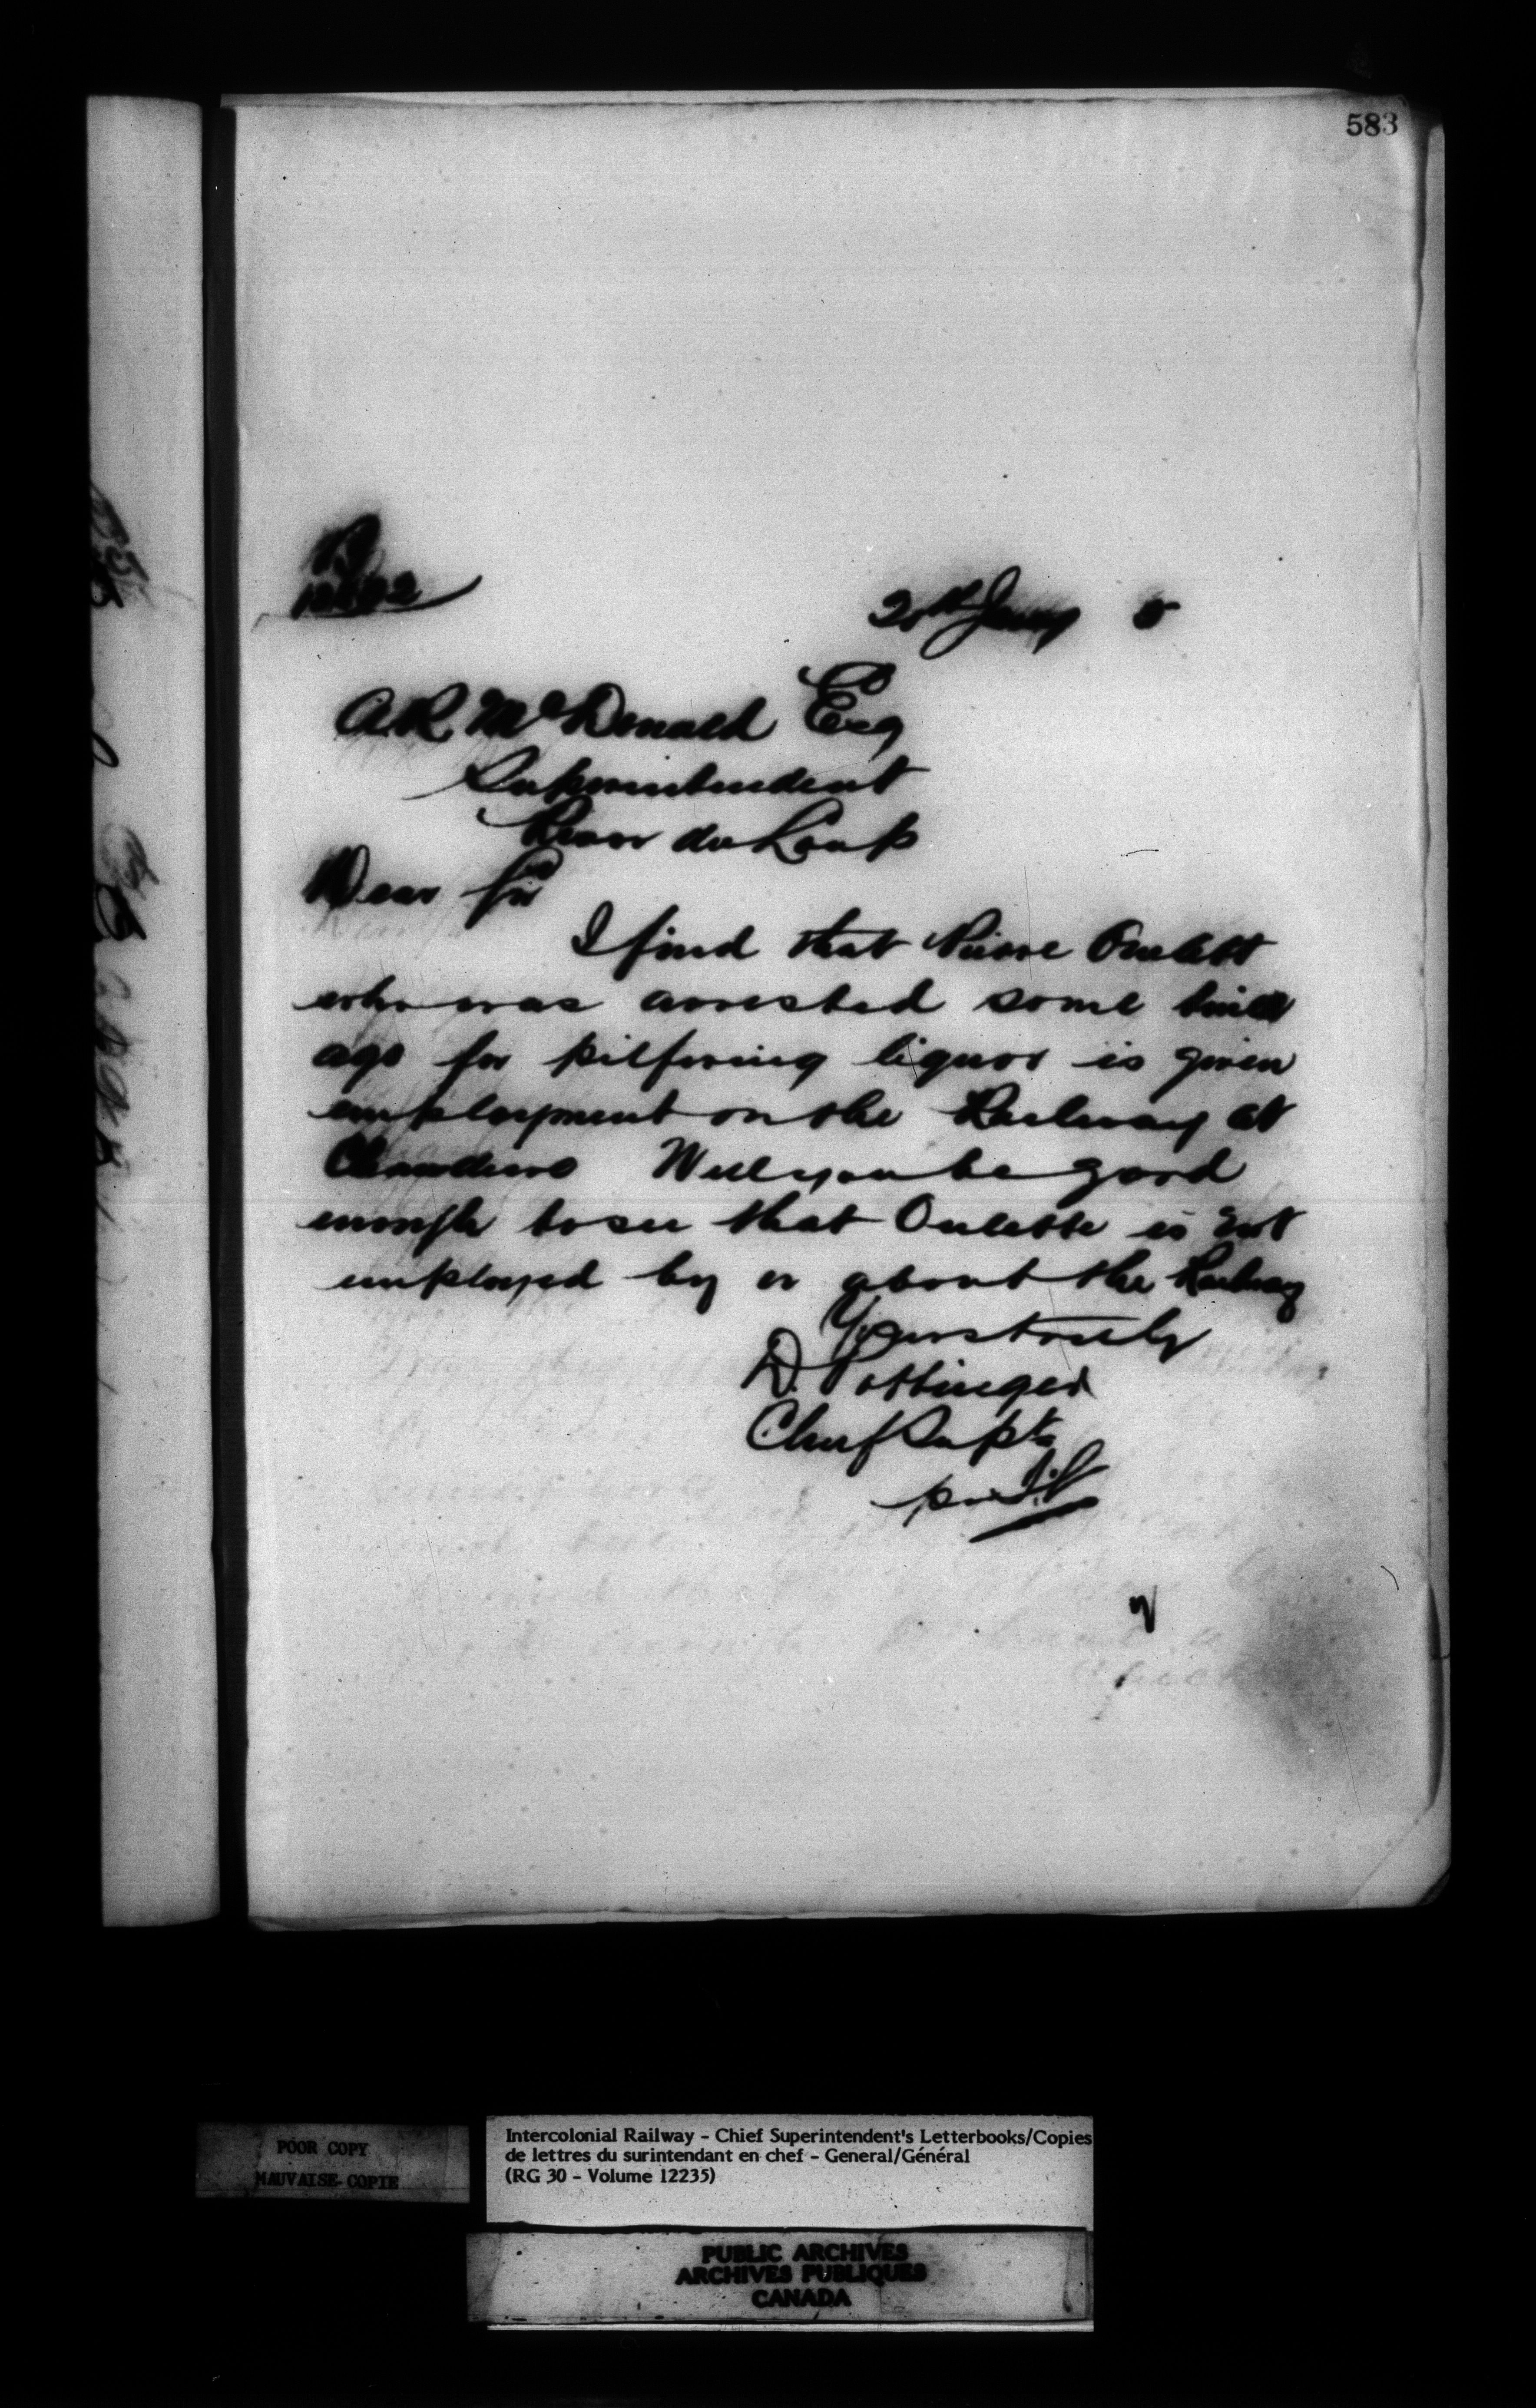 583
20th Jany 5
A.R. McDonald Esq
Superintendent
River du Loup
Dear Sir
I find that Pierre Oulett
who was arrested some time
ago for pilfering liquor is given
employment on the Railway at
Chaudiere Will you be good
enough to see that Oulette is not
employed by or about the Railway
Yours truly
D. Pottinger
Chief Supt
per
POOR COPY
MAUVAISE COPIE
Intercolonial Railway - Chief Superintendent's Letterbooks/Copies
de lettres du surintendant en chef - General/Général
(RG 30 - Volume 12235)
PUBLIC ARCHIVES
ARCHIVES PUBLIQUES
CANADA